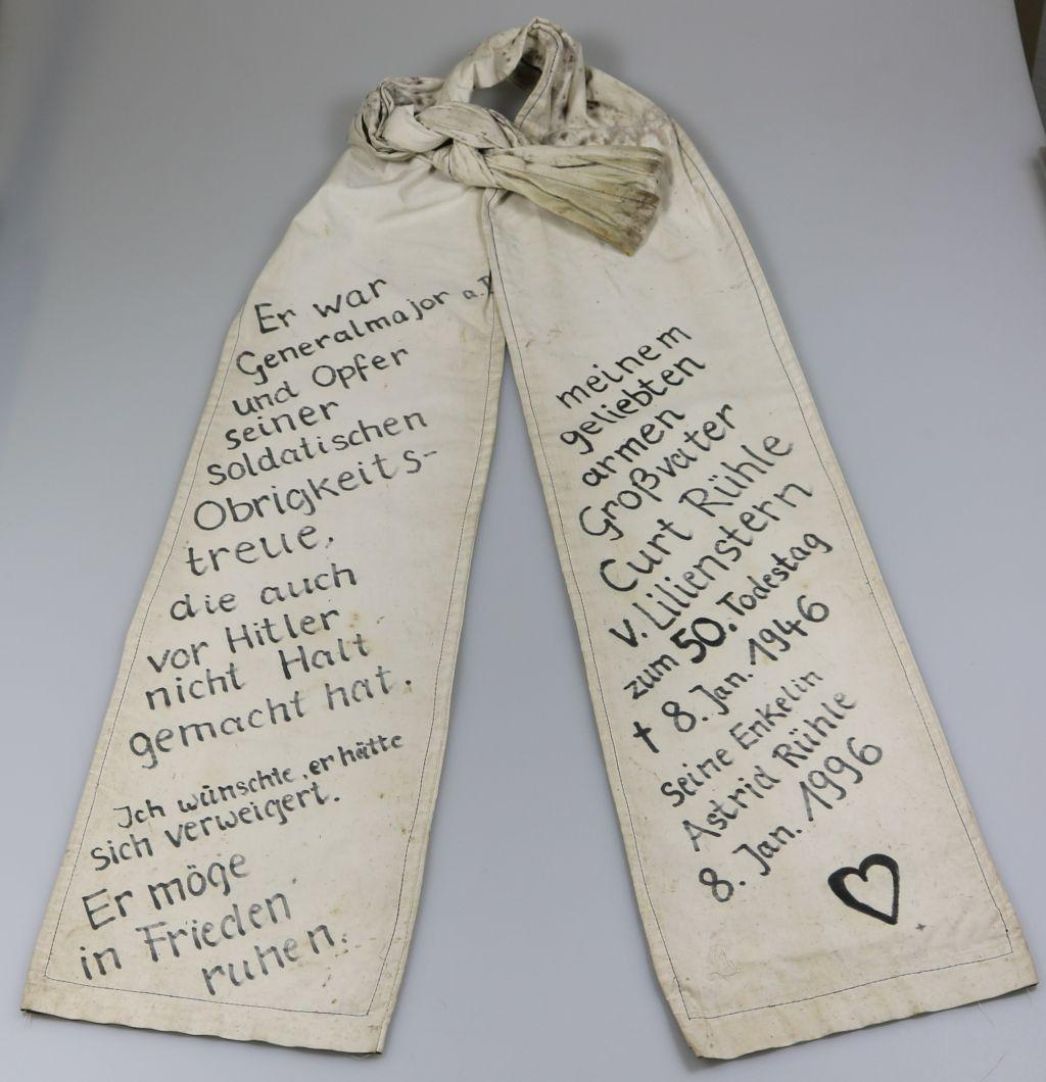 Er war
Generalmajor a.D
und Opfer
seiner
soldatischen
Obrigkeits-
treue,
die auch
vor Hitler
nicht Halt
gemacht hat.
Ich wünschte, er hätte
sich verweigert.
Er möge
in Frieden
ruhen.
meinem
geliebten
armen
Großvater
Curt Rühle
v. Lilienstern
zum 50. Todestag
† 8. Jan. 1946
seine Enkelin
Astrid Rühle
8. Jan. 1996